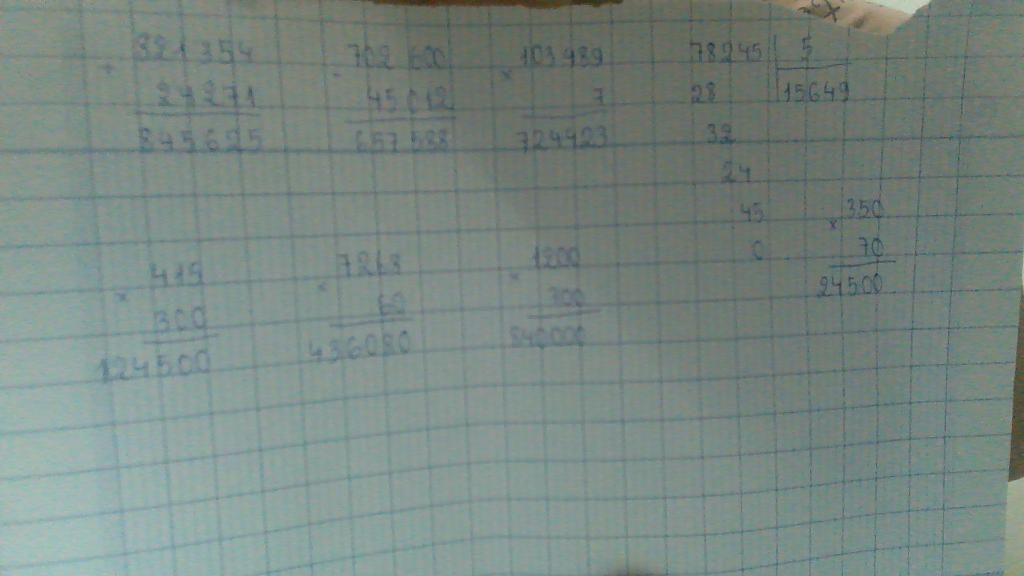 + 821354
24271
845625
- 702600
45012
657588
× 103489
7
724423
78245 | 5
28 | 15649
32
24
45
0
× 350
70
24500
× 415
300
124500
× 7268
60
436080
× 1200
700
840000